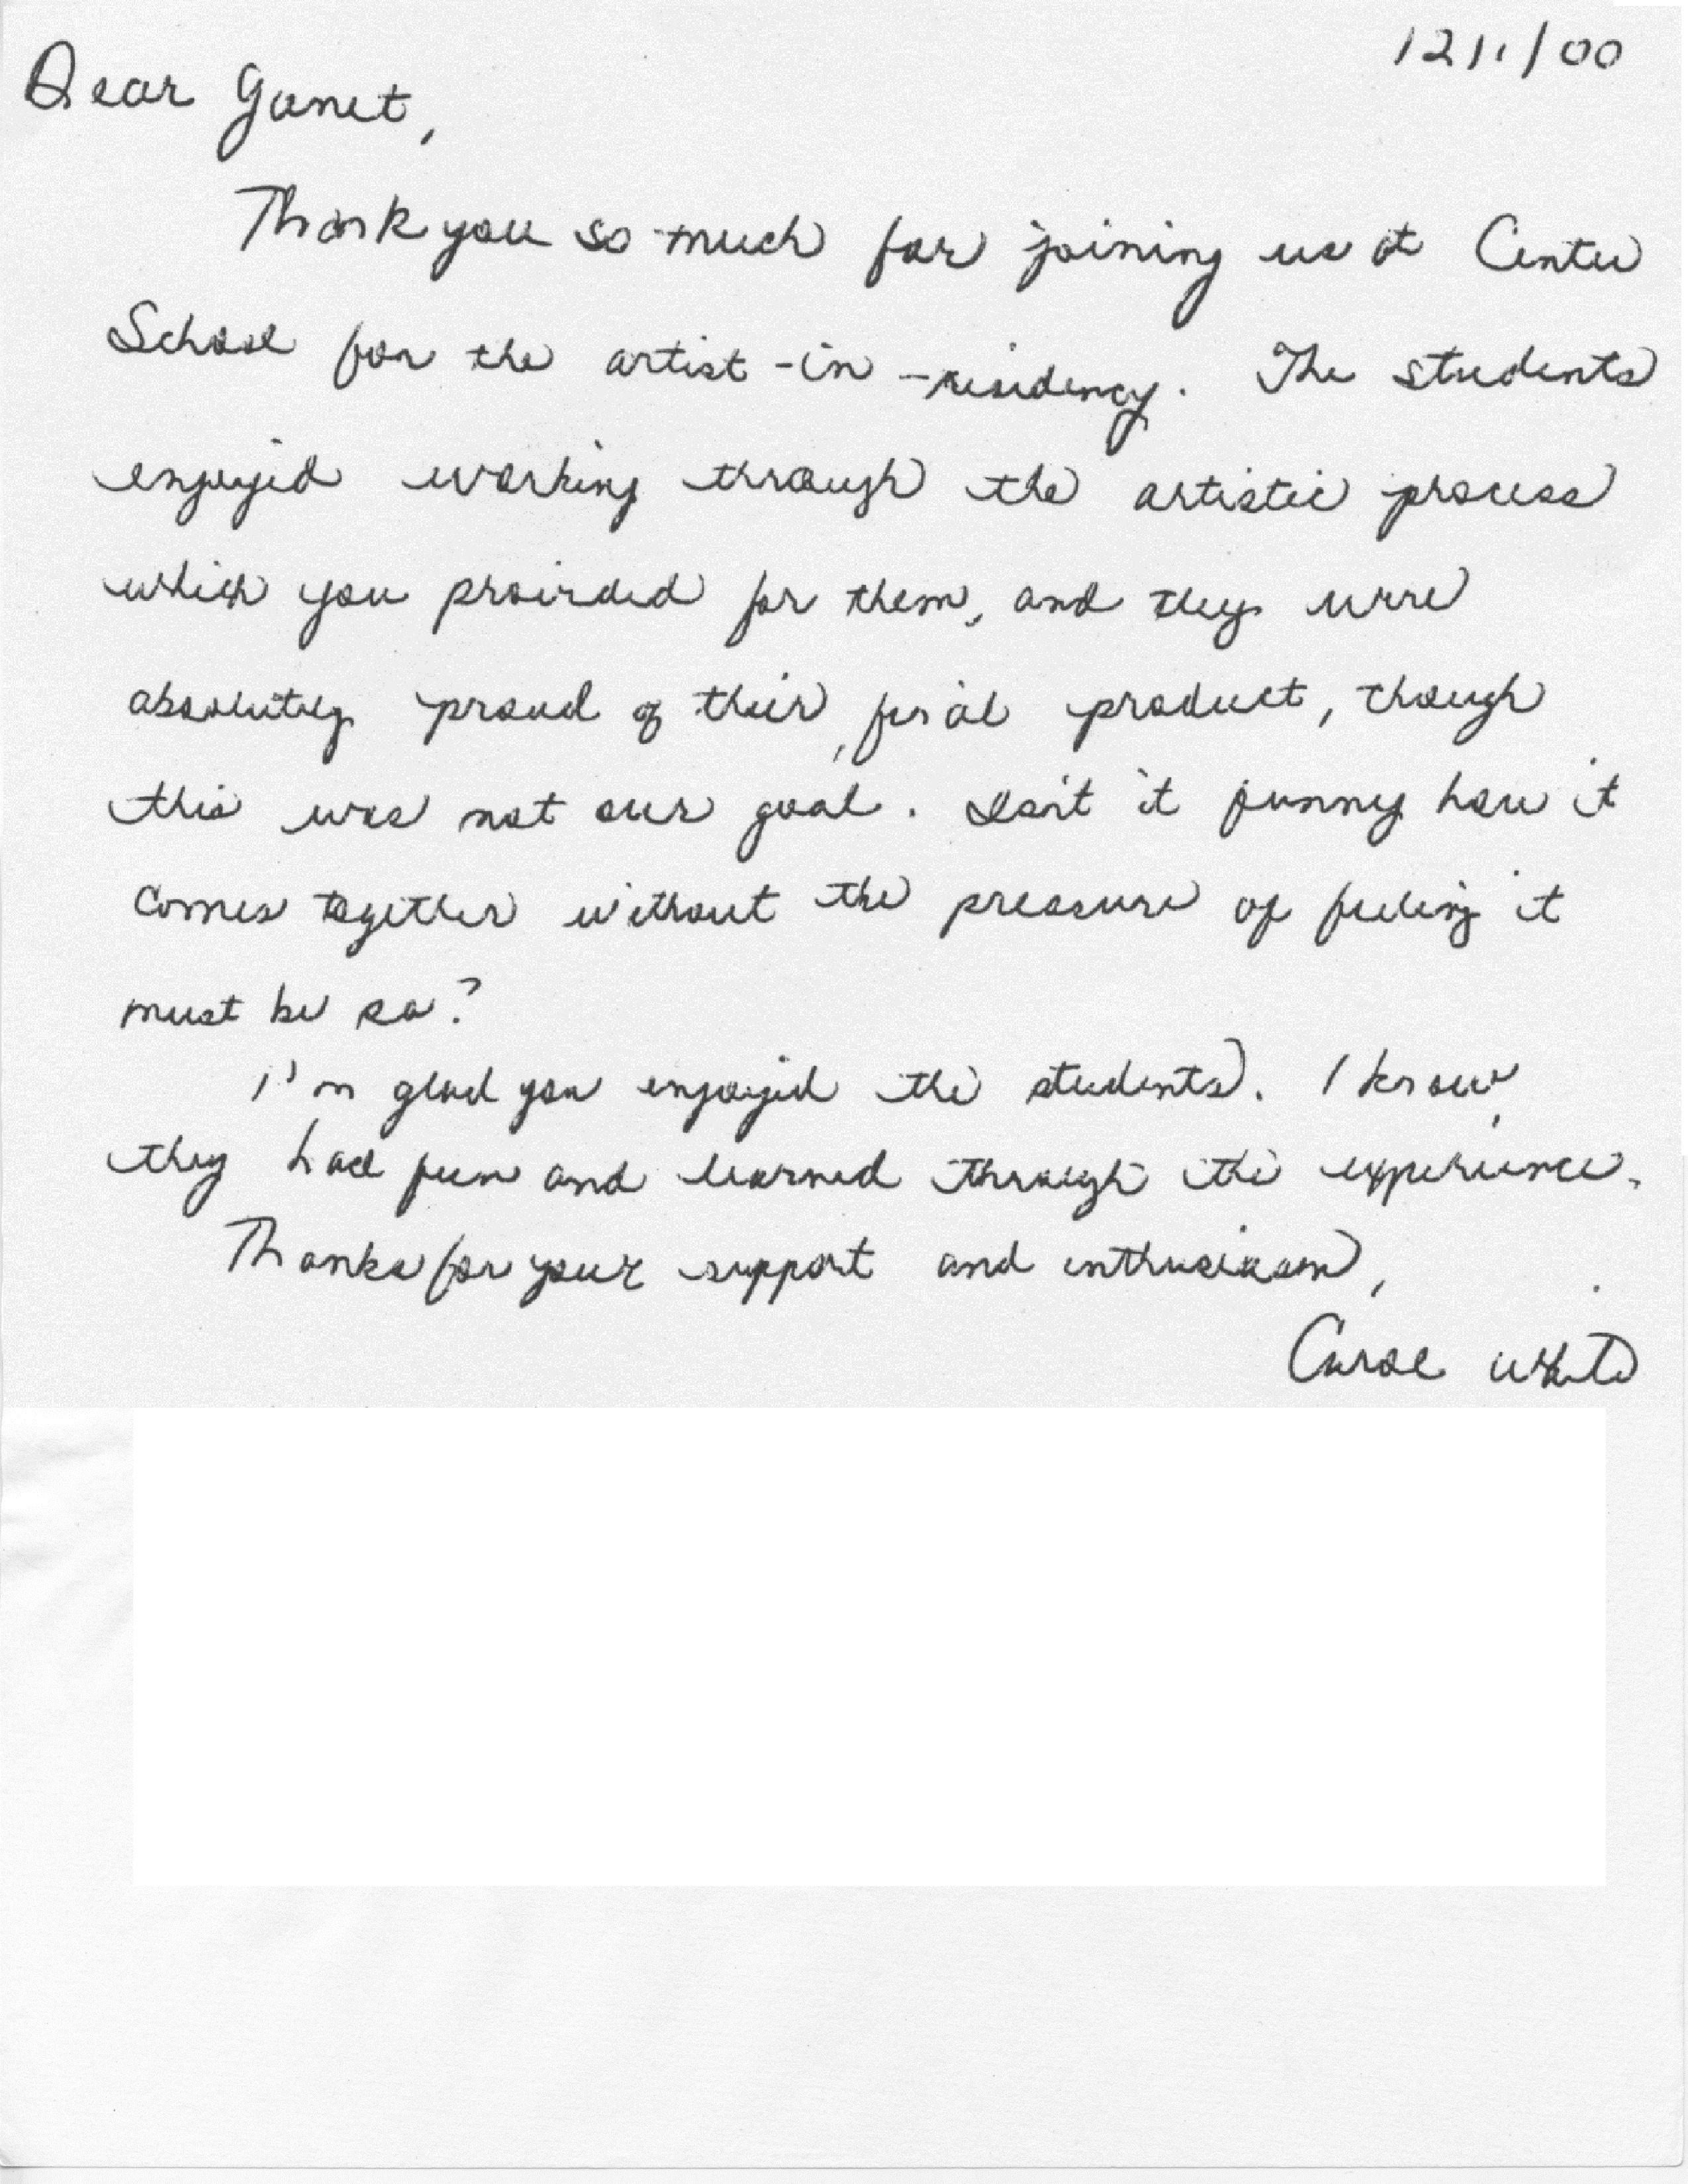 12/1/00
Dear Janet,
Thank you so much for joining us at Center
School for the artist-in-residency. The students
enjoyed working through the artistic process
which you provided for them, and they were
absolutely proud of their final product, though
this was not our goal. Isn't it funny how it
comes together without the pressure of feeling it
must be so?
I'm glad you enjoyed the students. I know
they had fun and learned through the experience.
Thanks for your support and enthusiasm,
Carol White